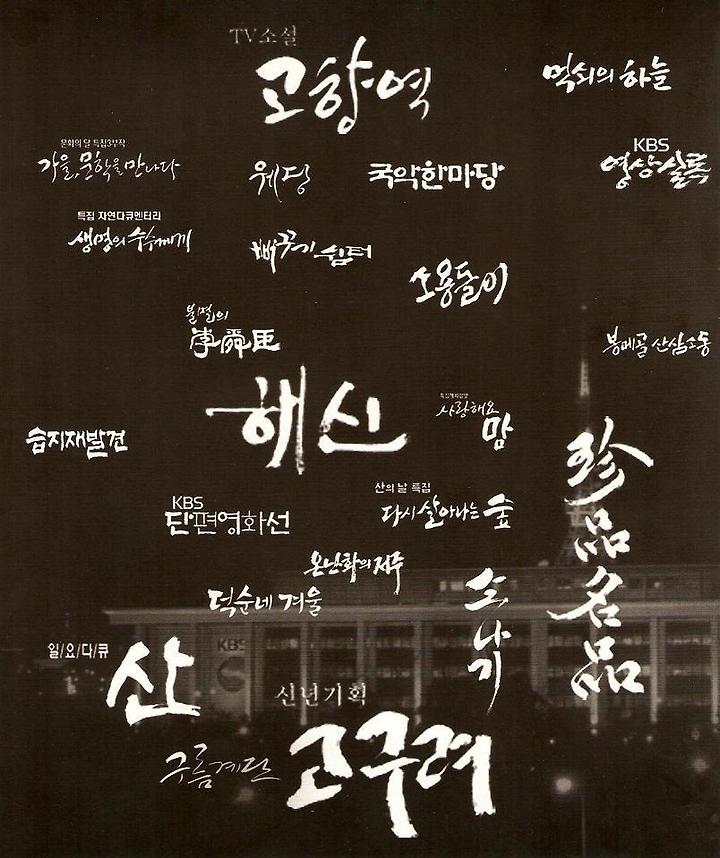 TV소설
고향역
먹쇠의 하늘
문화의 달 특집3부작
가을, 문학을 만나다
웨딩
국악한마당
KBS
영상실록
특집 자연다큐멘터리
생명의 수수께끼
뻐꾸기 쉼터
소용돌이
불멸의
李舜臣
봉메골 산삼소동
해신
사랑해요
맘
습지재발견
珍品名品
KBS
단편영화선
산의 날 특집
다시 살아나는 숲
온난화의 저주
덕순네 겨울
소나기
일/요/다/큐
산
KBS
신년기획
고구려
구름계단